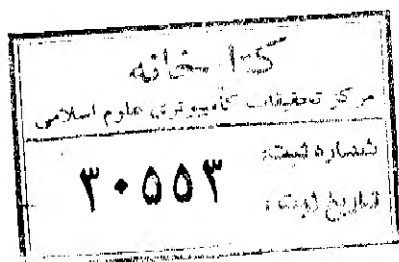 کتابخانه
مرکز تحقیقات کامپیوتری علوم اسلامی
شماره ثبت:
۳۰۵۵۳
تاریخ ثبت: